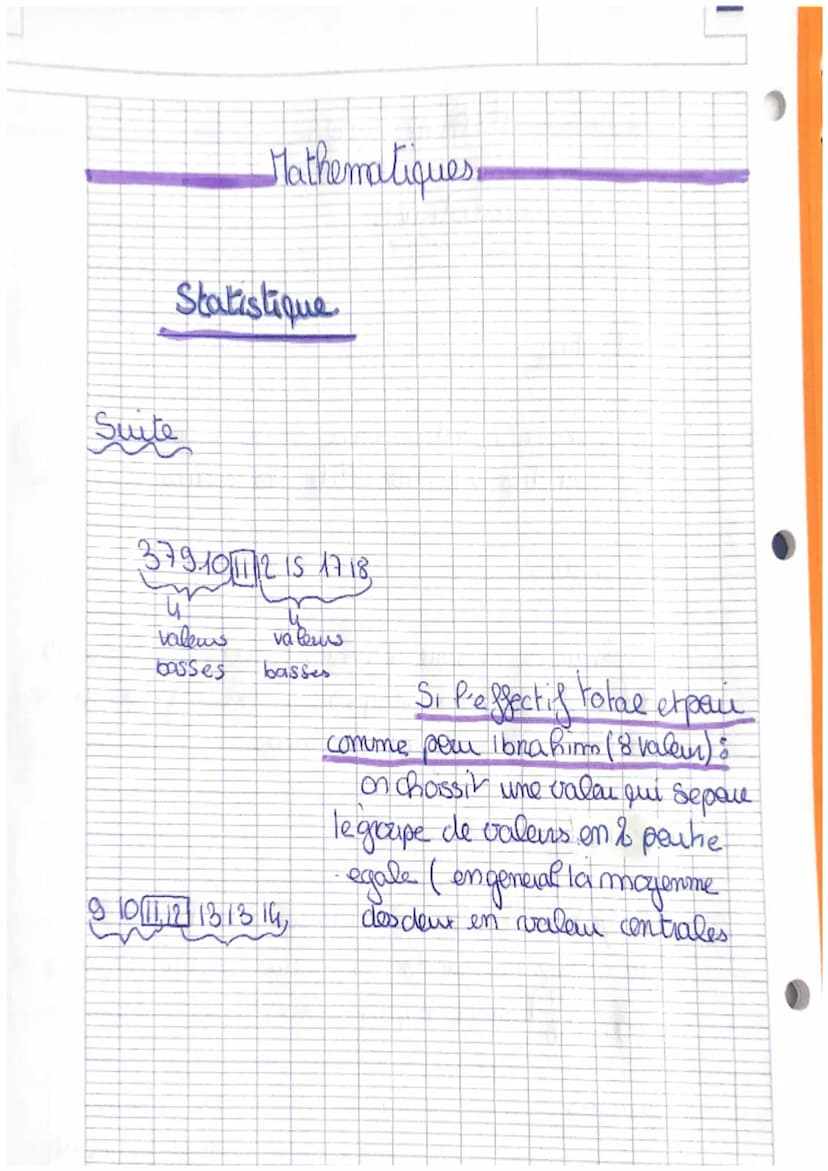 Mathematiques
Statistique
Suite
3 7 9 10 11 12 15 17 18
4 4
valeurs valeurs
basses basses
Si l'effectif total et pair
comme pour ibrahim (8 valeur) :
on choisir une valeur qui separe
le groupe de valeurs en 2 partie
egale ( en general la moyenne
des deux en valeur centrales
9 10 11,12 13 13 14